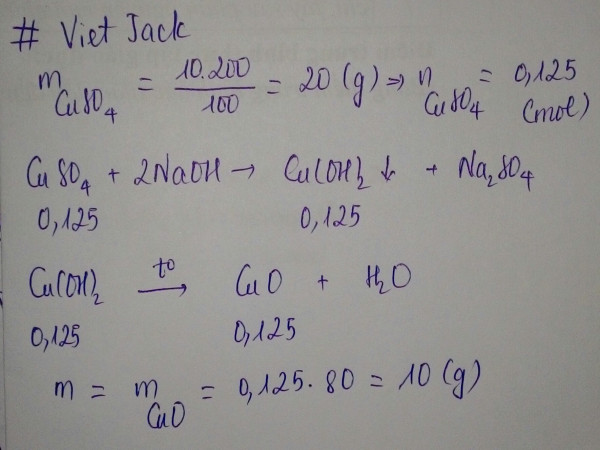 # Viet Jack
m CuSO4 = 10.200/100 = 20 (g) => n CuSO4 = 0,125 (mol)
CuSO4 + 2NaOH → Cu(OH)2 ↓ + Na2SO4
0,125 0,125
Cu(OH)2 —t°→ CuO + H2O
0,125 0,125
m = m CuO = 0,125. 80 = 10 (g)